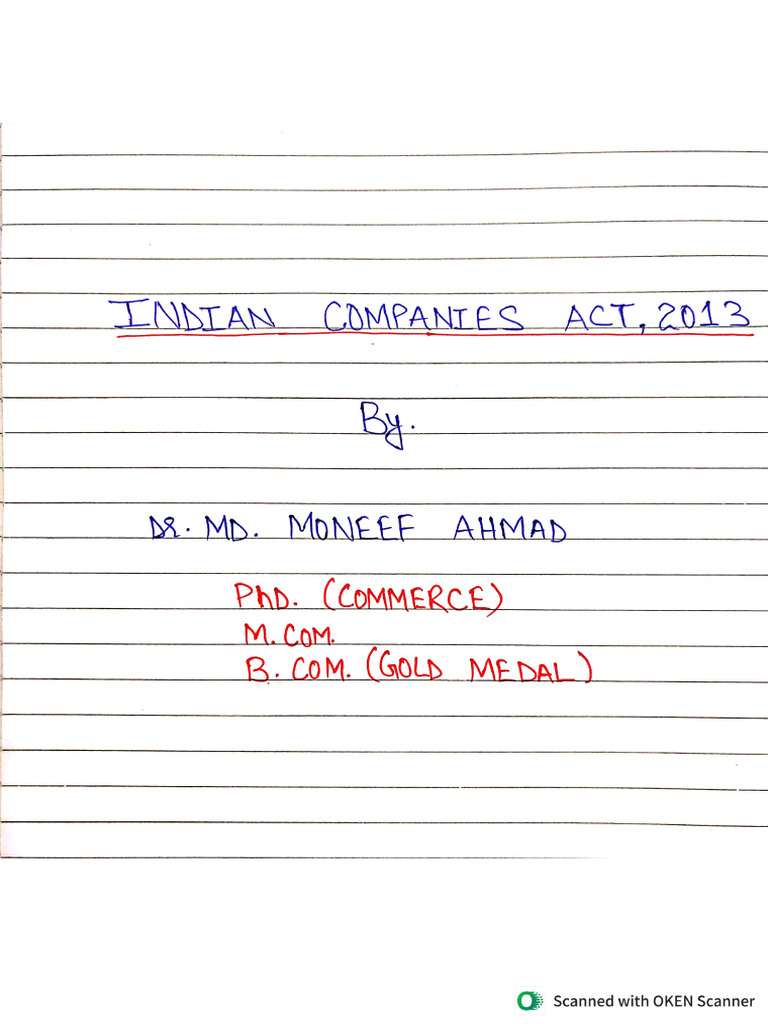 INDIAN COMPANIES ACT, 2013
By.
Dr. MD. MONEEF AHMAD
PhD. (COMMERCE)
M.COM.
B.COM. (GOLD MEDAL)
Scanned with OKEN Scanner